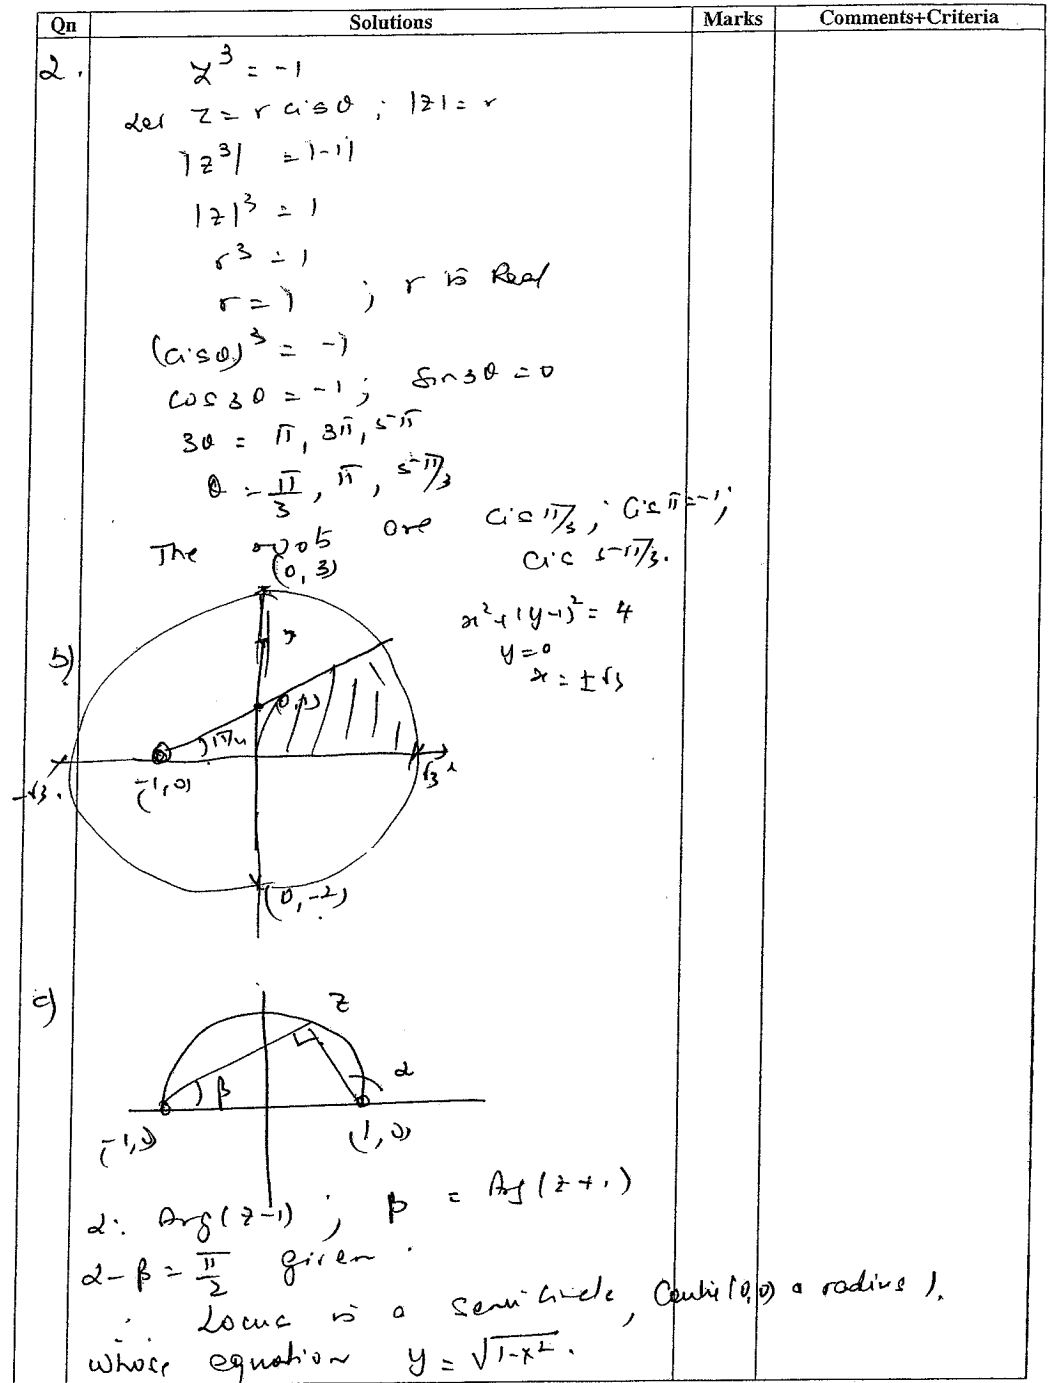 Qn Solutions Marks Comments+Criteria
2. z³ = -1
Let z = r cisθ ; |z| = r
|z³| = |-1|
|z|³ = 1
r³ = 1
r = 1 ; r is Real
(cisθ)³ = -1
cos3θ = -1 ; sin3θ = 0
3θ = π, 3π, 5π
θ = π/3, π, 5π/3
The roots are cis π/3, cis π = -1,
cis 5π/3.
(0, 3)
x² + (y-1)² = 4
y = 0
x = ±√3
b)
(0,1)
π/4
-√3.
(-1,0)
√3
(0,-2)
c)
z
β α
(-1,0) (1,0)
α: Arg(z-1) ; β = Arg(z+1)
α-β = π/2 given.
∴ Locus is a semi circle, Centre (0,0) a radius 1.
whose equation y = √1-x².